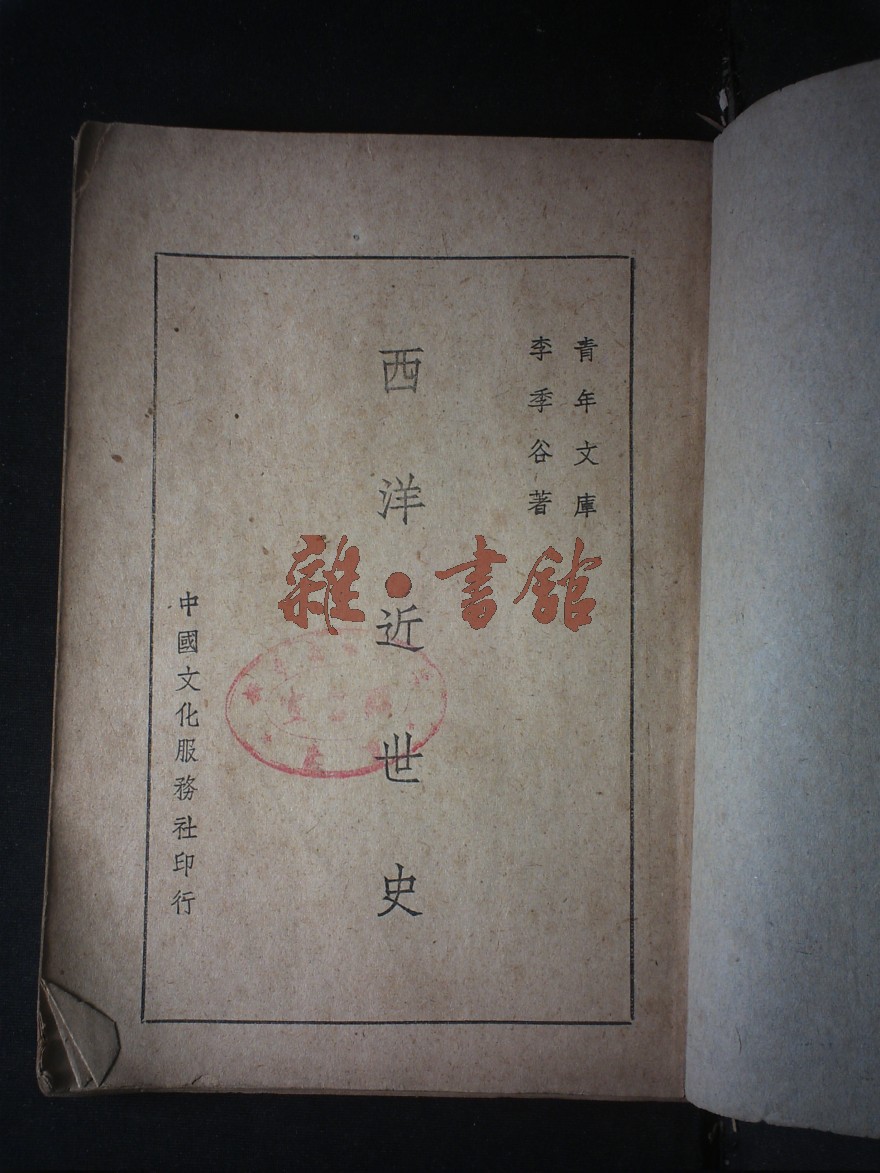 青年文庫
李季谷著
西洋近世史
中國文化服務社印行
雜·書館